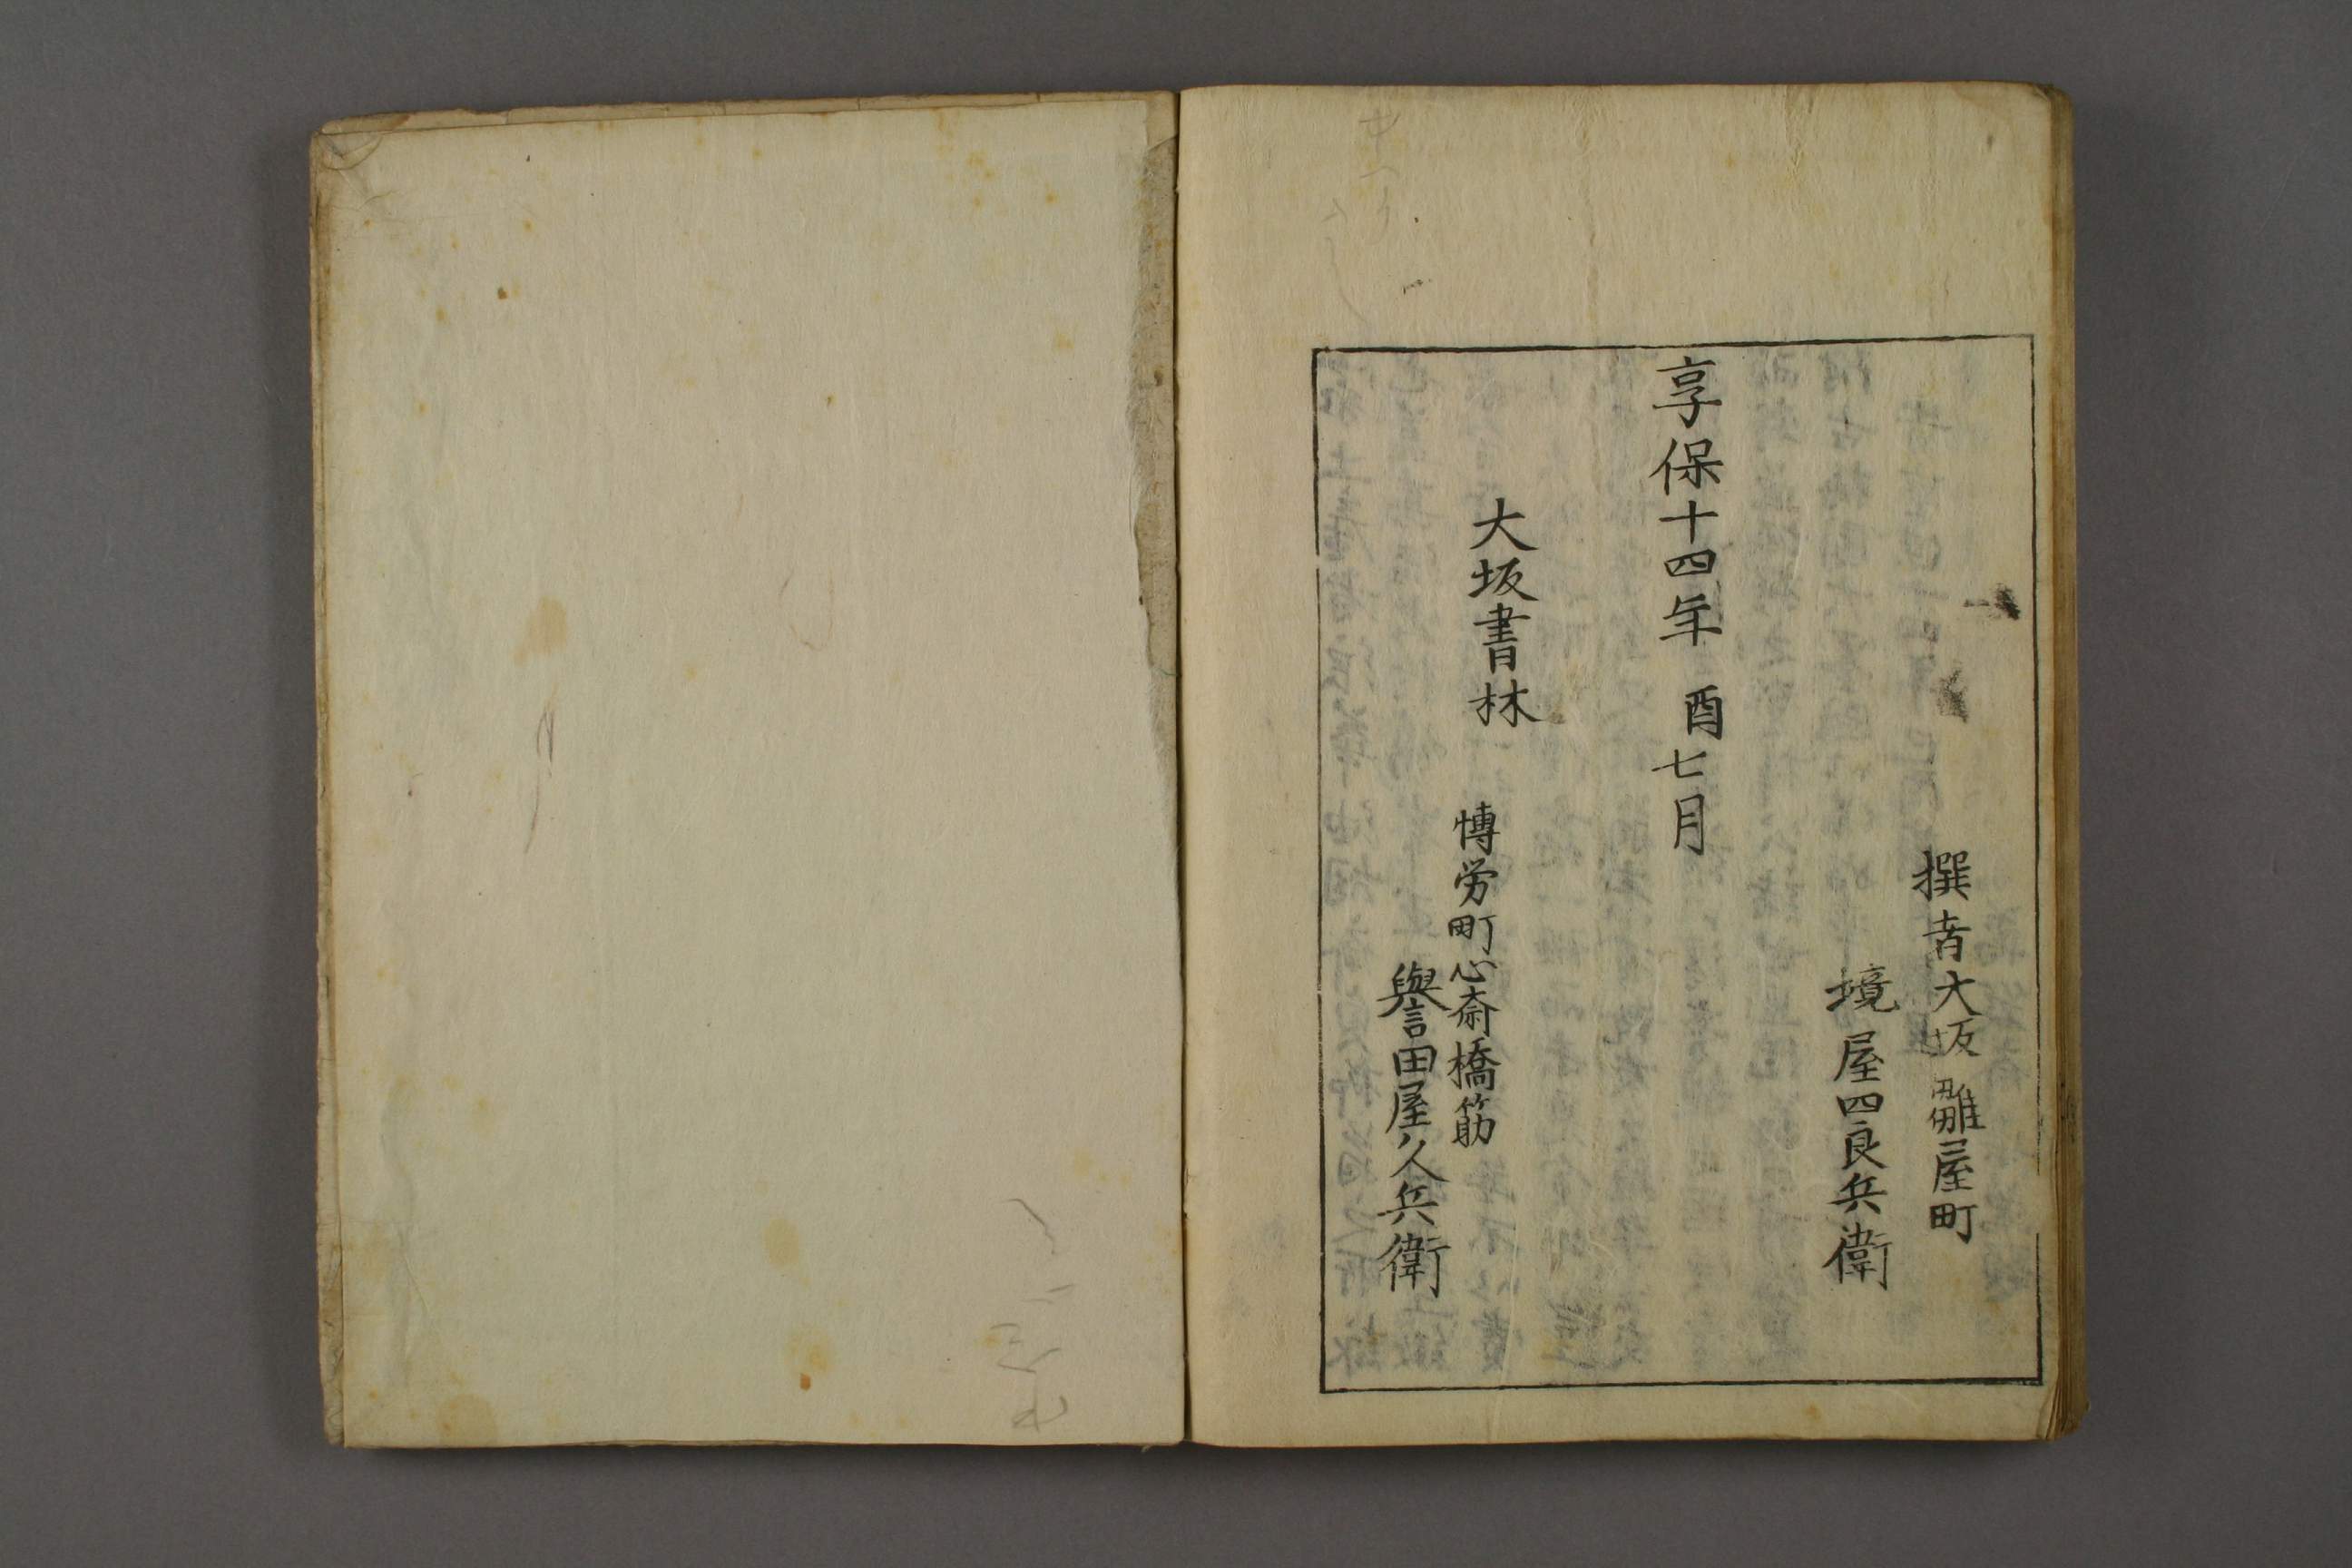 撰者大坂雛屋町
境屋四良兵衛
享保十四年 酉七月
大坂書林
博労町心斎橋筋
譽田屋久兵衛